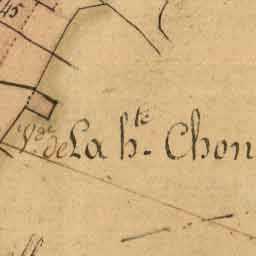 45
V.de de La h.te Chon